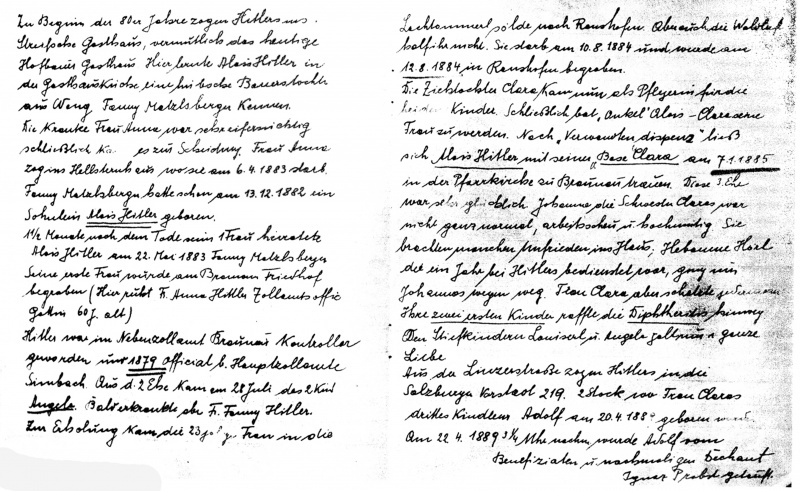 Zu Beginn der 80er Jahre zogen Hitlers ins
Streifsche Gasthaus, vermutlich das heutige
Hofbauer Gasthaus Hier lernte Alois Hitler in
der Gasthausküche eine hübsche Bauerstochter
aus Weng Fanny Matzlsberger kennen.
Die kranke Frau Anna war sehr eifersüchtig
schließlich es zu Scheidung. Frau Anna
zog ins wo sie am 6.4.1883 starb.
Fanny Matzlsberger hatte schon am 13.12.1882 ein
Söhnlein Alois Hitler geboren.
1½ Monate nach dem Tode seiner 1 Frau heiratete
Alois Hitler am 22. Mai 1883 Fanny Matzlsberger
Seine erste Frau wurde am Braunau Friedhof
begraben (Hier ruht F. Anna Hitler Zollamtsoffic
Gattin 60 J. alt)
Hitler war im Nebenzollamt Braunau Kontrollor
geworden und 1879 Official b. Hauptzollamte
Simbach. Aus d. 2 Ehe kam am 28 Juli das 2 Kind
Angela. Bald erkrankte aber F. Fanny Hitler.
Zur Erholung kam die 23 Frau in die
nach Ranshofen. Aber auch die Waldluft
half ihr nicht. Sie starb am 10.8.1884 und wurde am
12.8.1884 in Ranshofen begraben.
Die Ziehtochter Clara kam nun als Pflegerin für die
beiden Kinder. Schließlich bat "Onkel" Alois - Clara seine
Frau zu werden. Nach "Verwandten dispenz" ließ
sich Alois Hitler mit seiner "Base" Clara am 7.1.1885
in der Pfarrkirche zu Braunau trauen. Diese 3. Ehe
war sehr glücklich Johanna die Schwester Claras war
nicht ganz normal, arbeitsscheu u hochmütig Sie
brachten manchen Unfrieden ins Haus; Hebamme
die ein Jahr bei Hitlers bedienstet war, ging nur
Johannas wegen weg. Frau Clara aber
Ihre zwei ersten Kinder raffte die Diphtheritis hinweg
Den Stiefkindern Louiserl u. Angela galt nun ganze
Liebe
Aus der Linzerstraße zogen Hitlers in die
Salzburger Vorstadt 219. 2 Stock wo Frau Claras
drittes Kindlein Adolf am 20.4.188 geboren
Am 22.4.1889 3¼ Uhr nachm, wurde Adolf vom
Benefiziaten u nachmaligen Dechant
Ignaz Probst getauft.